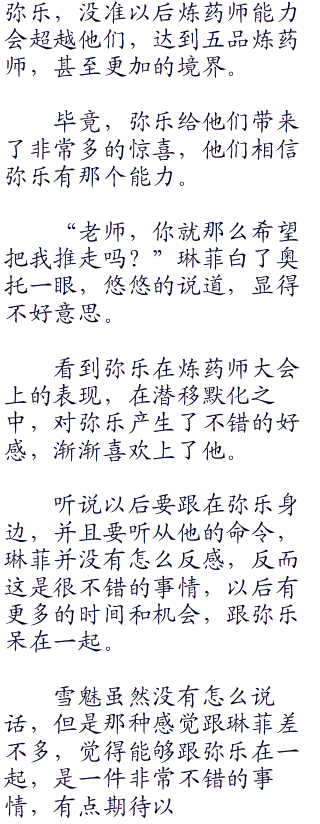 弥乐，没准以后炼药师能力
会超越他们，达到五品炼药
师，甚至更加的境界。
毕竟，弥乐给他们带来
了非常多的惊喜，他们相信
弥乐有那个能力。
“老师，你就那么希望
把我推走吗？”琳菲白了奥
托一眼，悠悠的说道，显得
不好意思。
看到弥乐在炼药师大会
上的表现，在潜移默化之
中，对弥乐产生了不错的好
感，渐渐喜欢上了他。
听说以后要跟在弥乐身
边，并且要听从他的命令，
琳菲并没有怎么反感，反而
这是很不错的事情，以后有
更多的时间和机会，跟弥乐
呆在一起。
雪魅虽然没有怎么说
话，但是那种感觉跟琳菲差
不多，觉得能够跟弥乐在一
起，是一件非常不错的事
情，有点期待以